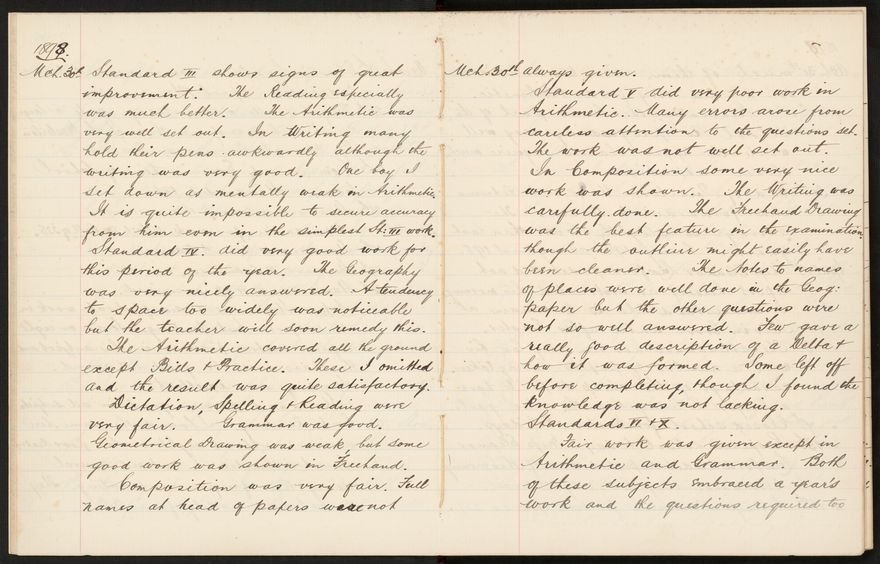 1898.
Mch. 30th Standard III shows signs of great
improvement. The Reading especially
was much better. The Arithmetic was
very well set out. In Writing many
hold their pens awkwardly although the
writing was very good. One boy I
set down as mentally weak in Arithmetic.
It is quite impossible to secure accuracy
from him even in the simplest St: III work.
Standard IV. did very good work for
this period of the year. The Geography
was very nicely answered. A tendency
to space too widely was noticeable
but the teacher will soon remedy this.
The Arithmetic covered all the ground
except Bills & Practice. These I omitted
and the result was quite satisfactory.
Dictation, Spelling & Reading were
very fair. Grammar was good.
Geometrical Drawing was weak but some
good work was shown in Freehand.
Composition was very fair. Full
names at head of papers were not
Mch. 30th always given.
Standard V did very poor work in
Arithmetic. Many errors arose from
careless attention to the questions set.
The work was not well set out.
In Composition some very nice
work was shown. The Writing was
carefully done. The Freehand Drawing
was the best feature in the examination
though the outline might easily have
been cleaner. The Notes to names
of places were well done in the Geog:
paper but the other questions were
not so well answered. Few gave a
really good description of a Delta &
how it was formed. Some left off
before completing, though I found the
knowledge was not lacking.
Standards VI & X.
Fair work was given except in
Arithmetic and Grammar. Both
of these subjects embraced a year's
work and the questions required too